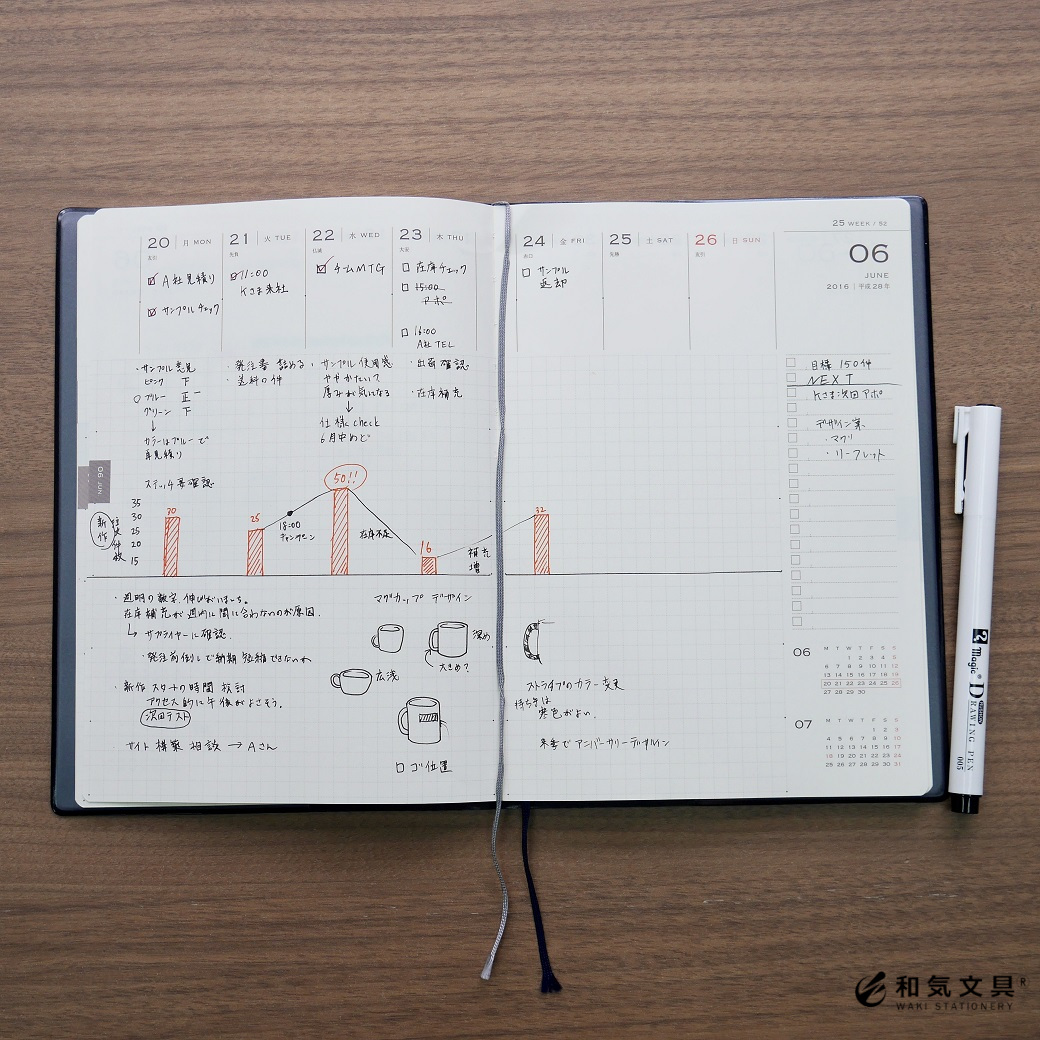 20 月 MON
21 火 TUE
22 水 WED
23 木 THU
24 金 FRI
25 土 SAT
26 日 SUN
先負
仏滅
大安
赤口
先勝
友引
A社見積り
サンプルチェック
11:00
Kさま来社
チームMTG
在庫チェック
15:00
アポ
16:00
A社TEL
サンプル
返却
25 WEEK / 52
06
JUNE
2016 | 平成28年
・サンプル意見
ピンク 下
○ブルー 正一
グリーン 下
↓
カラーはブルーで
再見積り
ステッチ再確認
・発注書 詰める
・送料の件
・サンプル使用感
ややかたいて
厚みが気になる
↓
仕様check
6月中めど
・出荷確認
・在庫補充
目標 150件
NEXT
Kさま:次回アポ
デザイン案
・マグ
・リーフレット
06 JUN
新作
注文件数
35
30
25
20
15
30
25
18:00
キャンペーン
50!!
在庫不足
16
補充
増
32
・週明の数字、伸びがいまいち。
在庫補充が週内に間に合わないのが原因.
↳ サプライヤーに確認.
・発注前倒しで納期短縮できないか
・新作スタートの時間 検討
アクセス的に午後がよさそう.
次回テスト
サイト構築 相談 → Aさん
マグカップ デザイン
深め
大きめ?
広浅
ロゴ位置
ストライプのカラー変更
持ち手は
寒色がよい.
来季でアニバーサリーデザイン
06
M T W T F S S
1 2 3 4 5
6 7 8 9 10 11 12
13 14 15 16 17 18 19
20 21 22 23 24 25 26
27 28 29 30
07
M T W T F S S
1 2 3
4 5 6 7 8 9 10
11 12 13 14 15 16 17
18 19 20 21 22 23 24
25 26 27 28 29 30 31
Magic®
DRAWING PEN
005
和気文具 R
WAKI STATIONERY